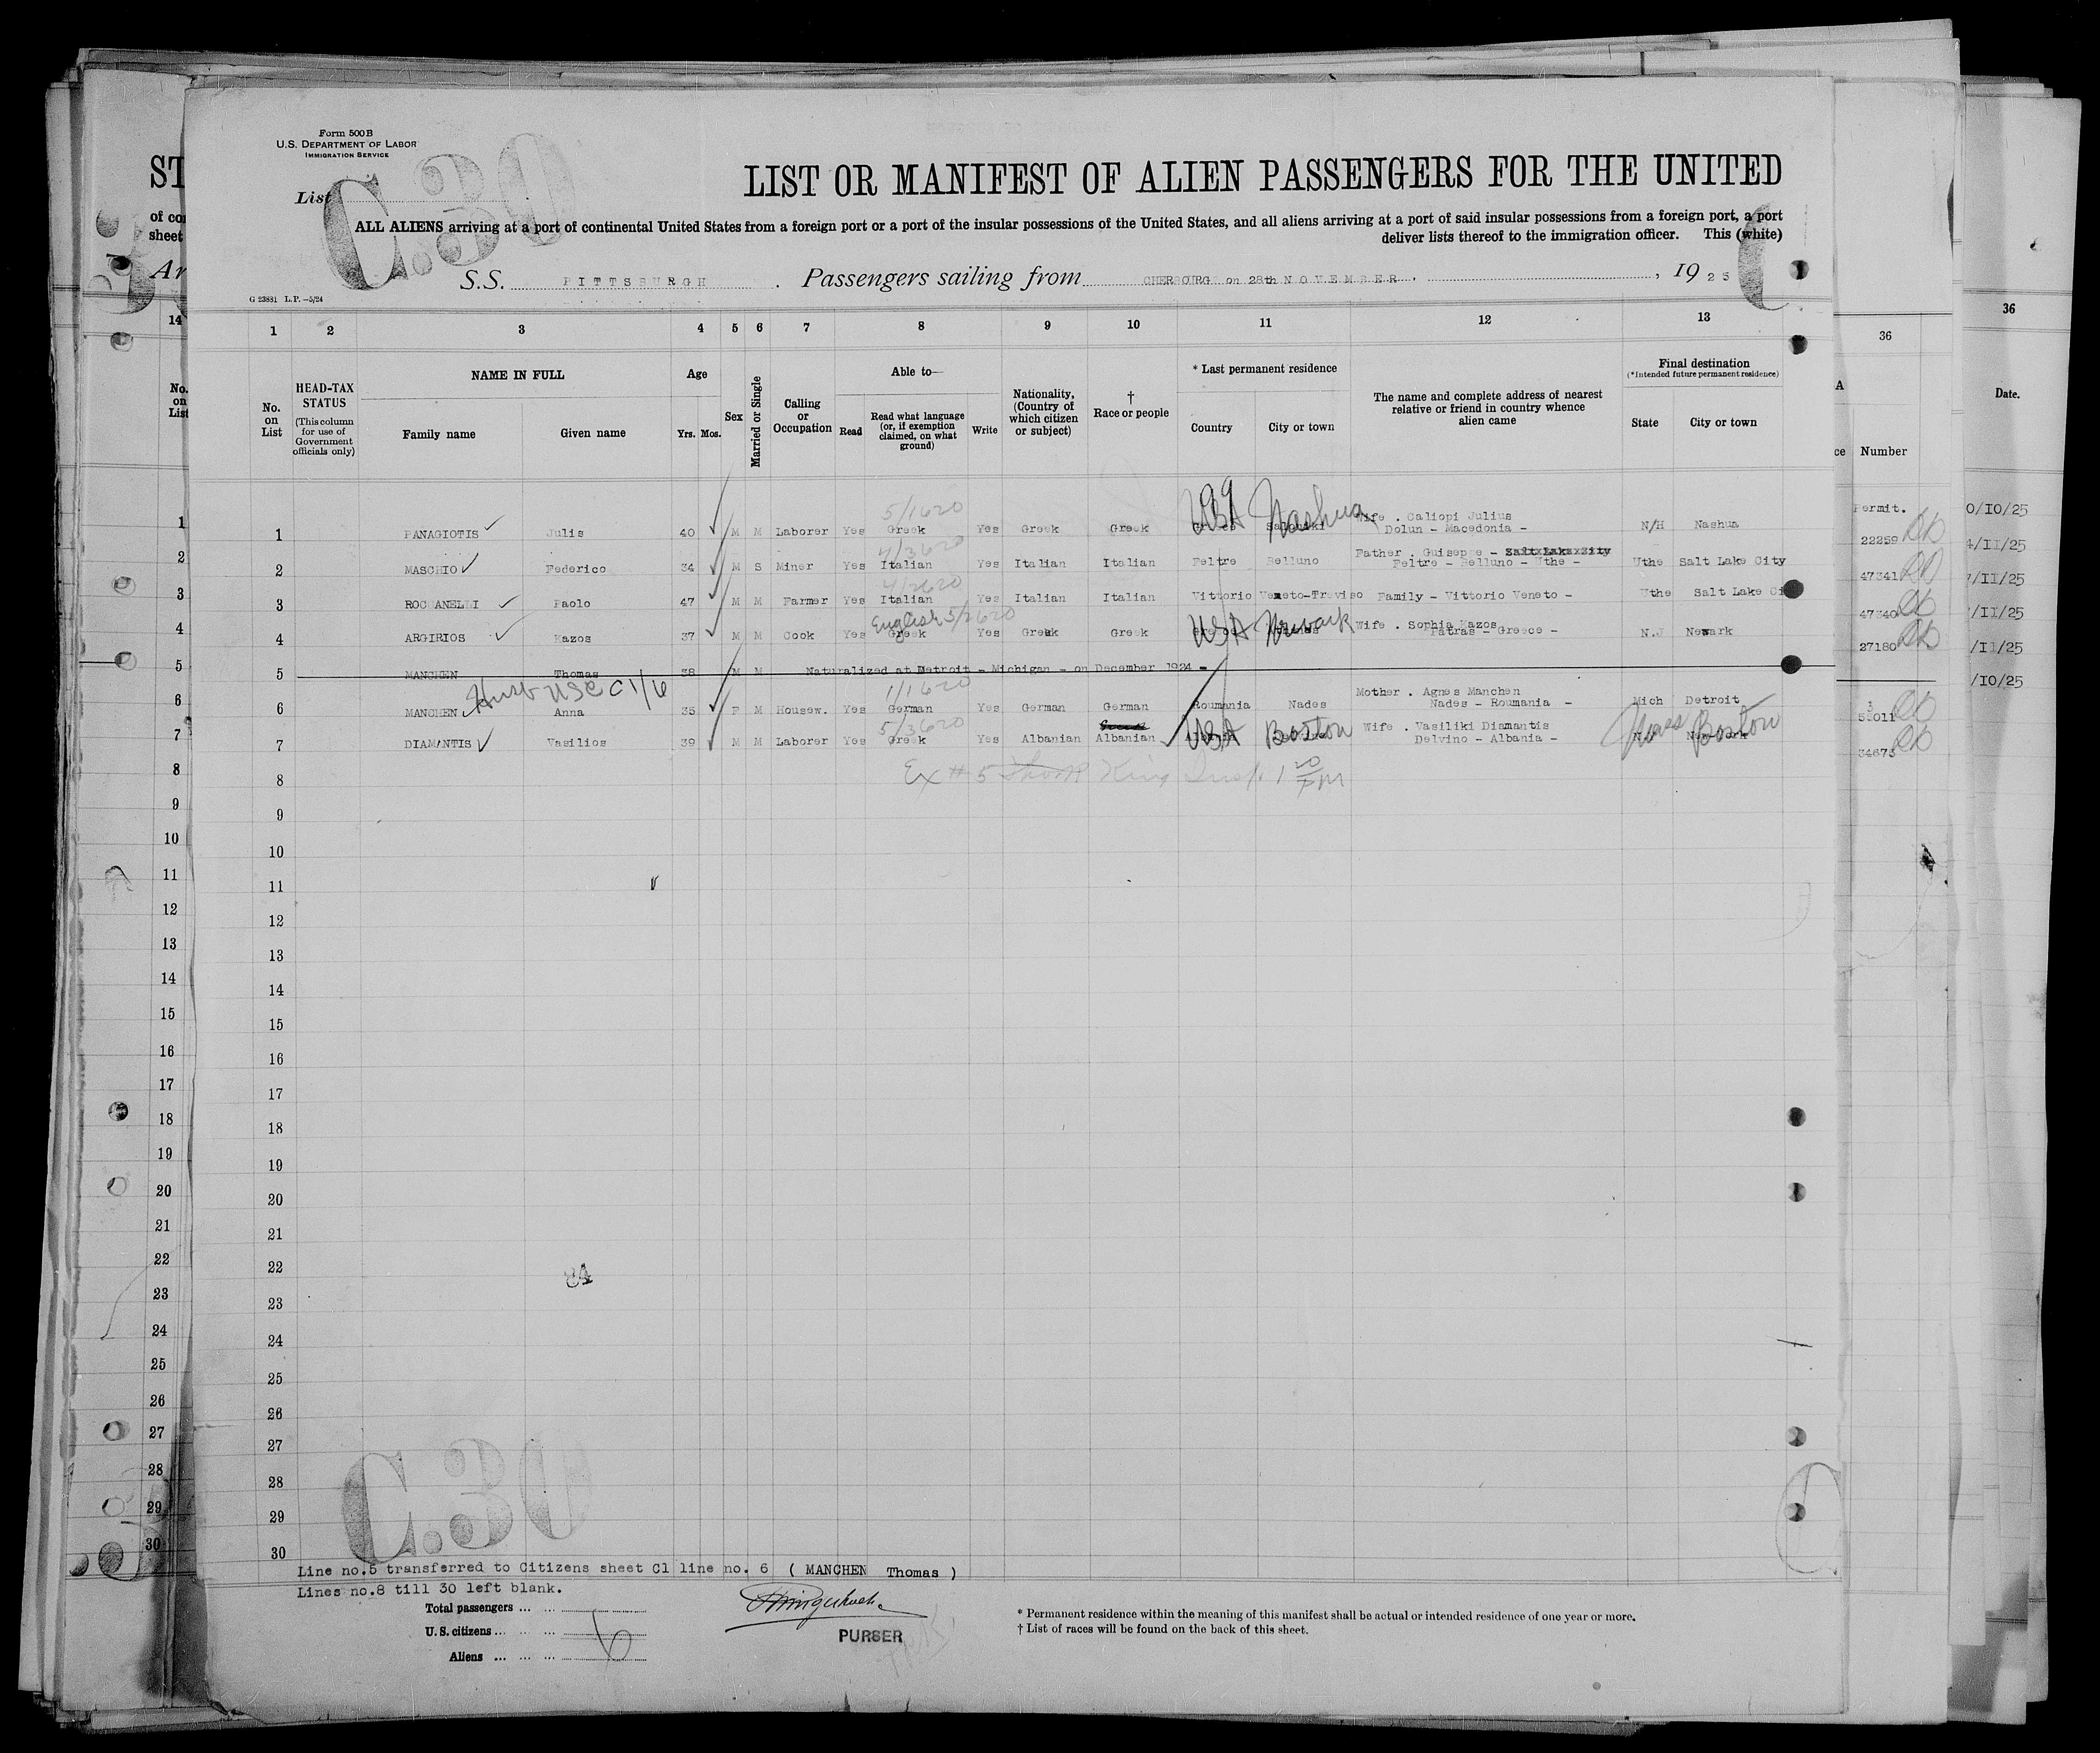 Form 500 B
U.S. DEPARTMENT OF LABOR
IMMIGRATION SERVICE
C.30
List
LIST OR MANIFEST OF ALIEN PASSENGERS FOR THE UNITED
ALL ALIENS arriving at a port of continental United States from a foreign port or a port of the insular possessions of the United States, and all aliens arriving at a port of said insular possessions from a foreign port, a port
deliver lists thereof to the immigration officer. This (white)
S.S. PITTSBURGH . Passengers sailing from CHERBOURG on 28th NOVEMBER. , 19 25
G 23831 L.P.—5/24
1 2 3 4 5 6 7 8 9 10 11 12 13
No. on List
HEAD-TAX STATUS
(This column for use of Government officials only)
NAME IN FULL
Family name Given name
Age
Yrs. Mos.
Sex
Married or Single
Calling or Occupation
Able to—
Read
Read what language (or, if exemption claimed, on what ground)
Write
Nationality, (Country of which citizen or subject)
† Race or people
* Last permanent residence
Country City or town
The name and complete address of nearest relative or friend in country whence alien came
Final destination
(*Intended future permanent residence)
State City or town
5/1620
1 PANAGIOTIS Julis 40 M M Laborer Yes Greek Yes Greek Greek USA Nashua Wife . Caliopi Julius Dolun - Macedonia - N/H Nashua
4/3620
2 MASCHIO Federico 34 M S Miner Yes Italian Yes Italian Italian Feltre Belluno Father . Guiseppe - Salt Lake City Feltre - Belluno - Uthe - Uthe Salt Lake City
4/2620
3 ROCCANELLI Paolo 47 M M Farmer Yes Italian Yes Italian Italian Vittorio Veneto-Treviso Family - Vittorio Veneto - Uthe Salt Lake Ci
English 5/2620
4 ARGIRIOS Kazos 37 M M Cook Yes Greek Yes Greek Greek USA Newark Wife . Sophia Kazos Patras - Greece - N.J Newark
5 MANCHEN Thomas 38 M M Naturalized at Detroit - Michigan - on December 1924 -
Husb USC C1/6
1/1620
6 MANCHEN Anna 35 F M Housew. Yes German Yes German German Roumania Nades Mother . Agnes Manchen Nades - Roumania - Mich Detroit
5/3620
7 DIAMANTIS Vasilios 39 M M Laborer Yes Greek Yes Albanian Albanian USA Boston Wife . Vasiliki Diamantis Delvino - Albania - Mass Boston
8
Ex # 5
9
10
11
12
13
14
15
16
17
18
19
20
21
22
23
24
25
26
27
28
29
30
C.30
Line no.5 transferred to Citizens sheet C1 line no. 6 ( MANCHEN Thomas )
Lines no.8 till 30 left blank.
Total passengers ... ...
U.S. citizens ... ... ...
Aliens ... ... ... 6
PURSER
* Permanent residence within the meaning of this manifest shall be actual or intended residence of one year or more.
† List of races will be found on the back of this sheet.
ST
of co
sheet
Ar
14
No. on List
1
2
3
4
5
6
7
8
9
10
11
12
13
14
15
16
17
18
19
20
21
22
23
24
25
26
27
28
29
30
36
A
ce Number
Permit.
22259
47341
47340
27180
34675
36
Date.
0/10/25
4/11/25
7/11/25
/11/25
/11/25
/10/25